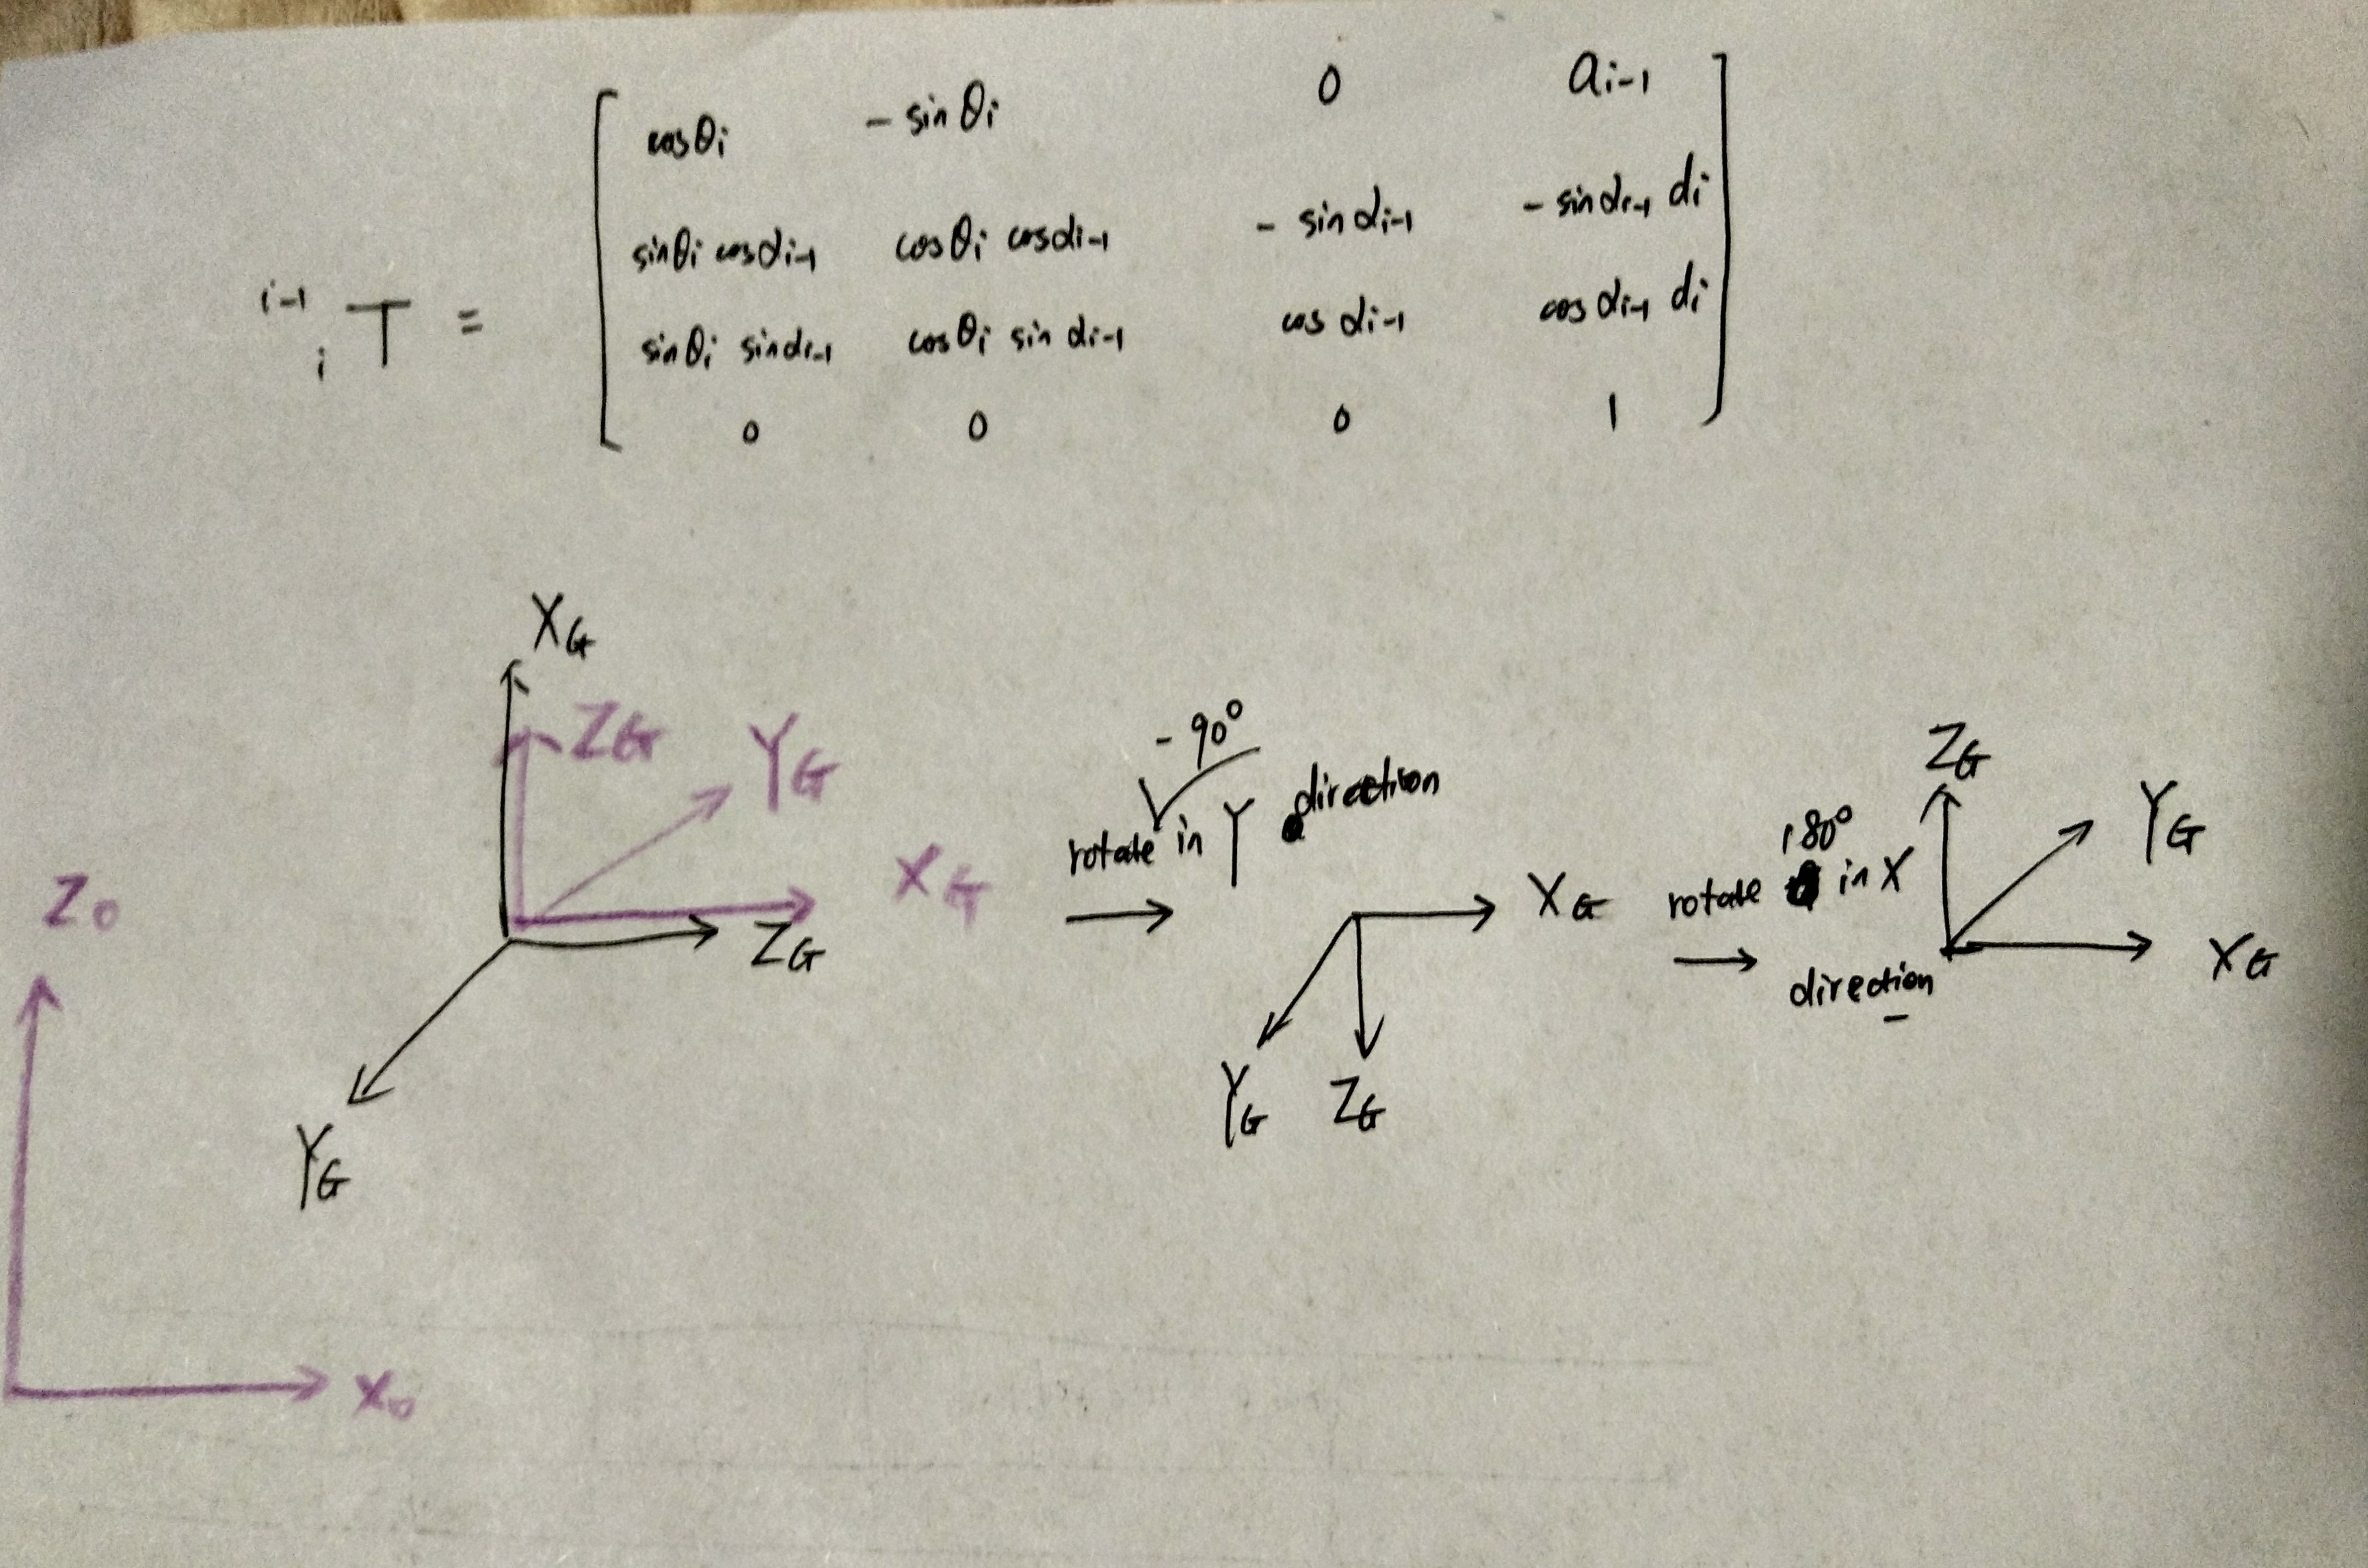 i-1 i T = [ cosθi -sinθi 0 ai-1
sinθi cosαi-1 cosθi cosαi-1 -sinαi-1 -sinαi-1 di
sinθi sinαi-1 cosθi sinαi-1 cosαi-1 cosαi-1 di
0 0 0 1 ]
XG
ZG
YG
XG
ZG
YG
Z0
X0
-90°
rotate in Y direction
→
XG
YG
ZG
180°
rotate in X
→
direction
ZG
YG
XG